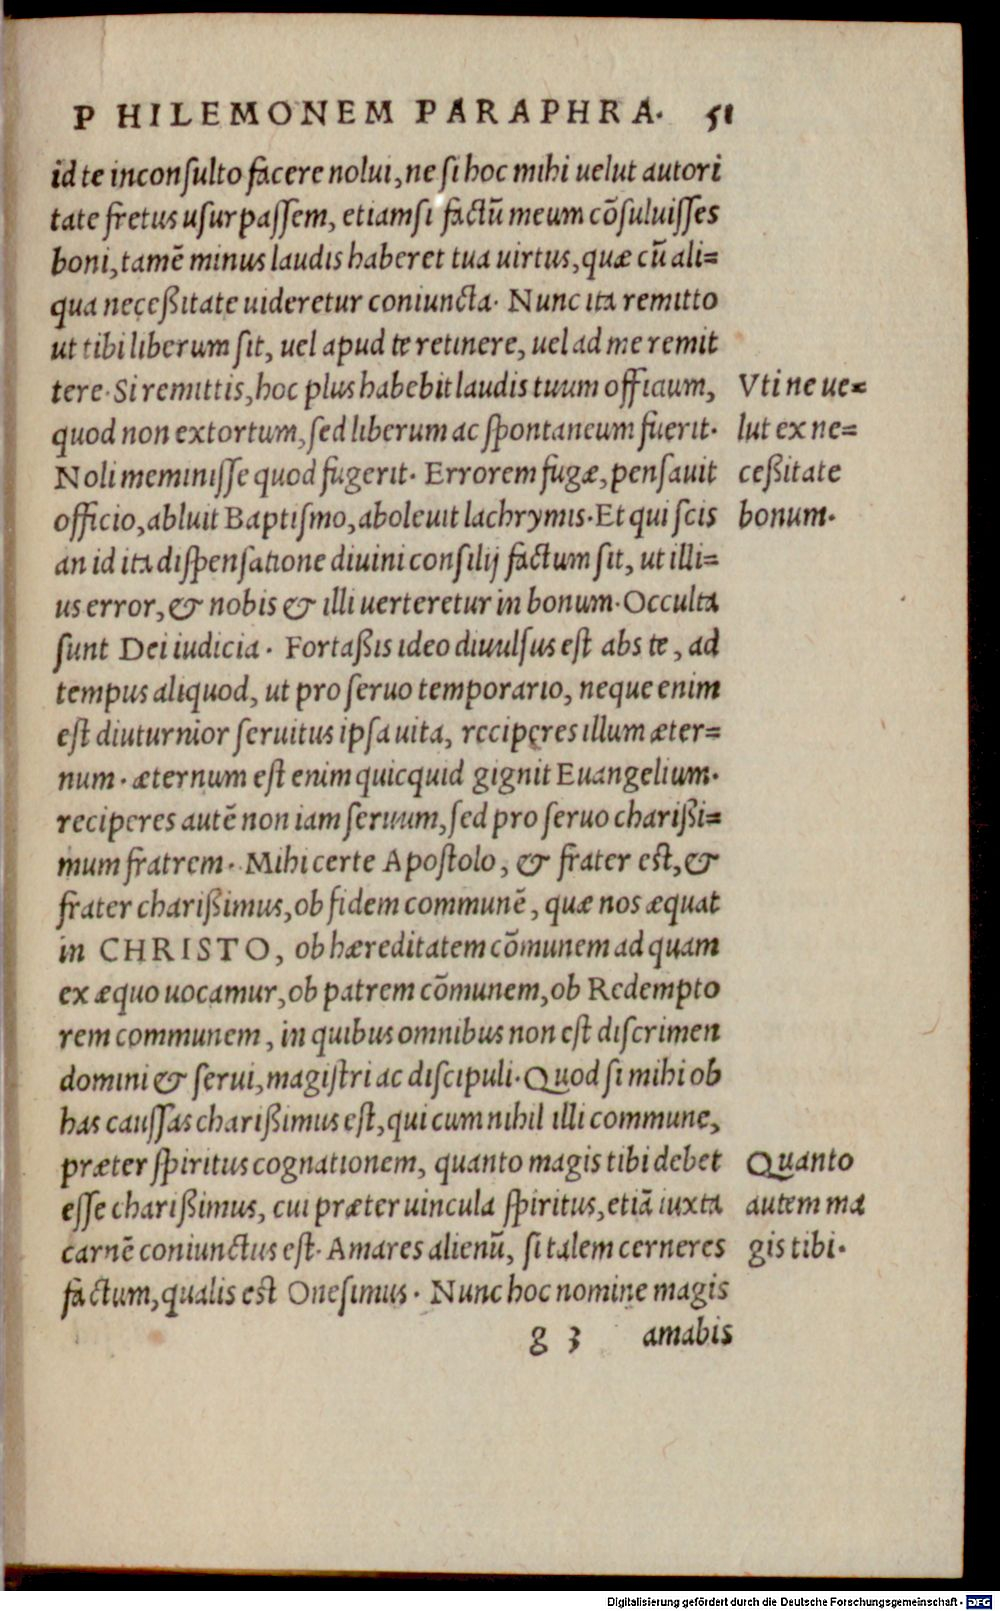 PHILEMONEM PARAPHRA. 51
id te inconſulto facere nolui, ne ſi hoc mihi uelut autori
tate fretus uſurpaſſem, etiamſi factū meum cōſuluiſſes
boni, tamē minus laudis haberet tua uirtus, quæ cū ali=
qua neceßitate uideretur coniuncta. Nunc ita remitto
ut tibi liberum ſit, uel apud te retinere, uel ad me remit
tere. Si remittis, hoc plus habebit laudis tuum officium,
quod non extortum, ſed liberum ac ſpontaneum fuerit.
Noli meminiſſe quod fugerit. Errorem fugæ, penſauit
officio, abluit Baptiſmo, aboleuit lachrymis. Et qui ſcis
an id ita diſpenſatione diuini conſilij factum ſit, ut illi=
us error, & nobis & illi uerteretur in bonum. Occulta
ſunt Dei iudicia. Fortaßis ideo diuulſus eſt abs te, ad
tempus aliquod, ut pro ſeruo temporario, neque enim
eſt diuturnior ſeruitus ipſa uita, reciperes illum æter=
num. æternum eſt enim quicquid gignit Euangelium.
reciperes autē non iam ſeruum, ſed pro ſeruo charißi=
mum fratrem. Mihi certe Apoſtolo, & frater est, &
frater charißimus, ob fidem communē, quæ nos æquat
in CHRISTO, ob hæreditatem cōmunem ad quam
ex æquo uocamur, ob patrem cōmunem, ob Redempto
rem communem, in quibus omnibus non eſt diſcrimen
domini & ſerui, magiſtri ac diſcipuli. Quod ſi mihi ob
has cauſſas charißimus eſt, qui cum nihil illi commune,
præter ſpiritus cognationem, quanto magis tibi debet
eſſe charißimus, cui præter uincula ſpiritus, etiā iuxta
carnē coniunctus eſt. Amares alienū, ſi talem cerneres
factum, qualis est Oneſimus. Nunc hoc nomine magis
g 3 amabis
Vti ne ue=
lut ex ne=
ceßitate
bonum.
Quanto
autem ma
gis tibi.
Digitalisierung gefördert durch die Deutsche Forschungsgemeinschaft - DFG